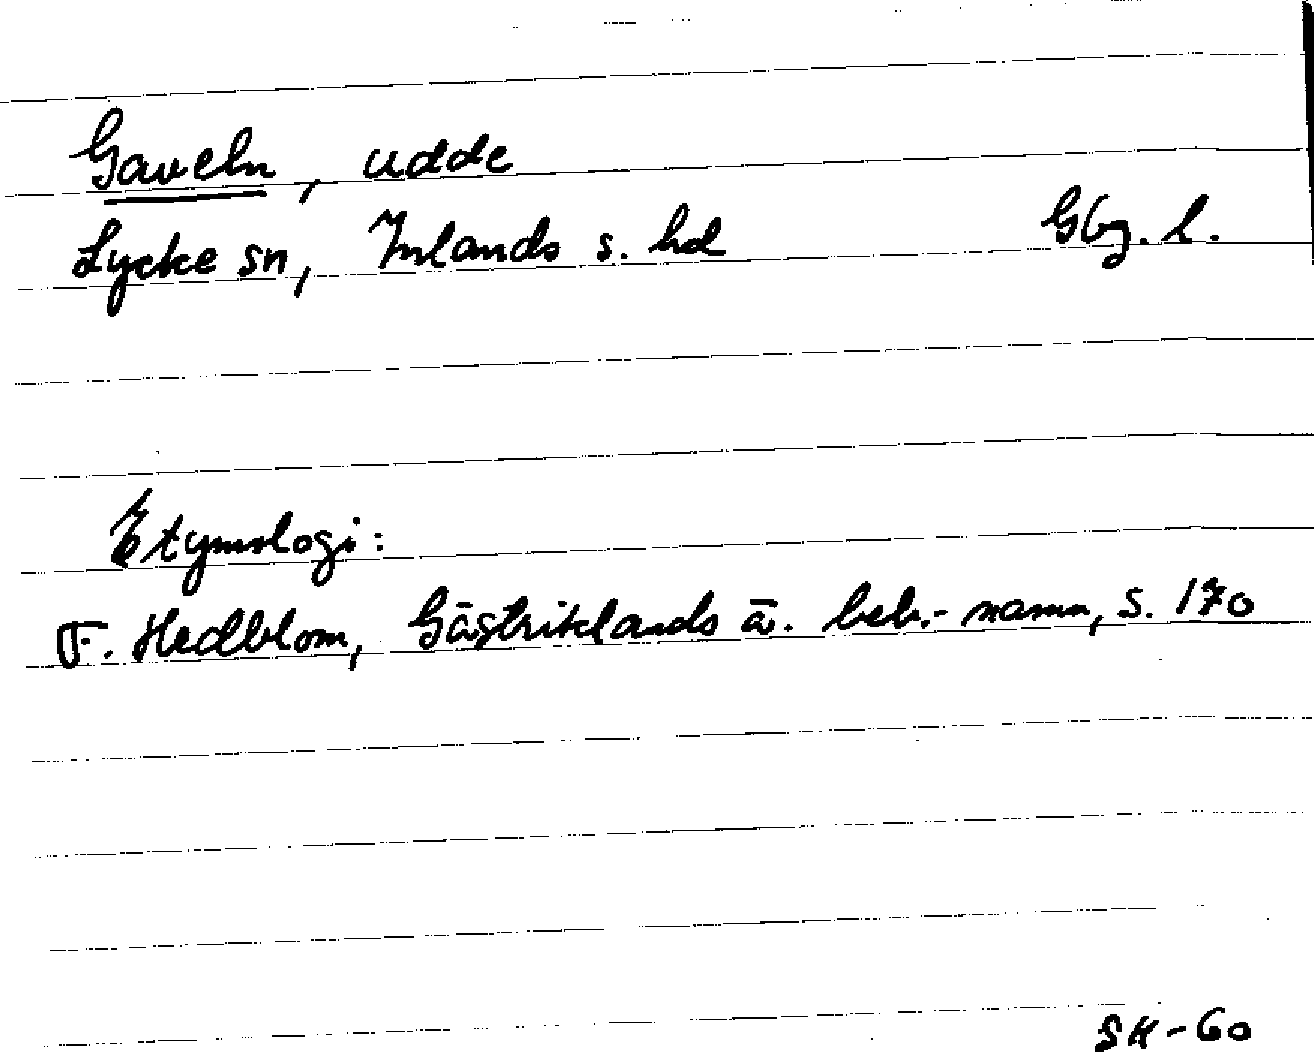 Gaveln, udde
Lycke sn, Inlands s. hd Gbg. l.
Etymologi:
F. Hedblom, Gästriklands ä. beb.-namn, s. 170
SH-60